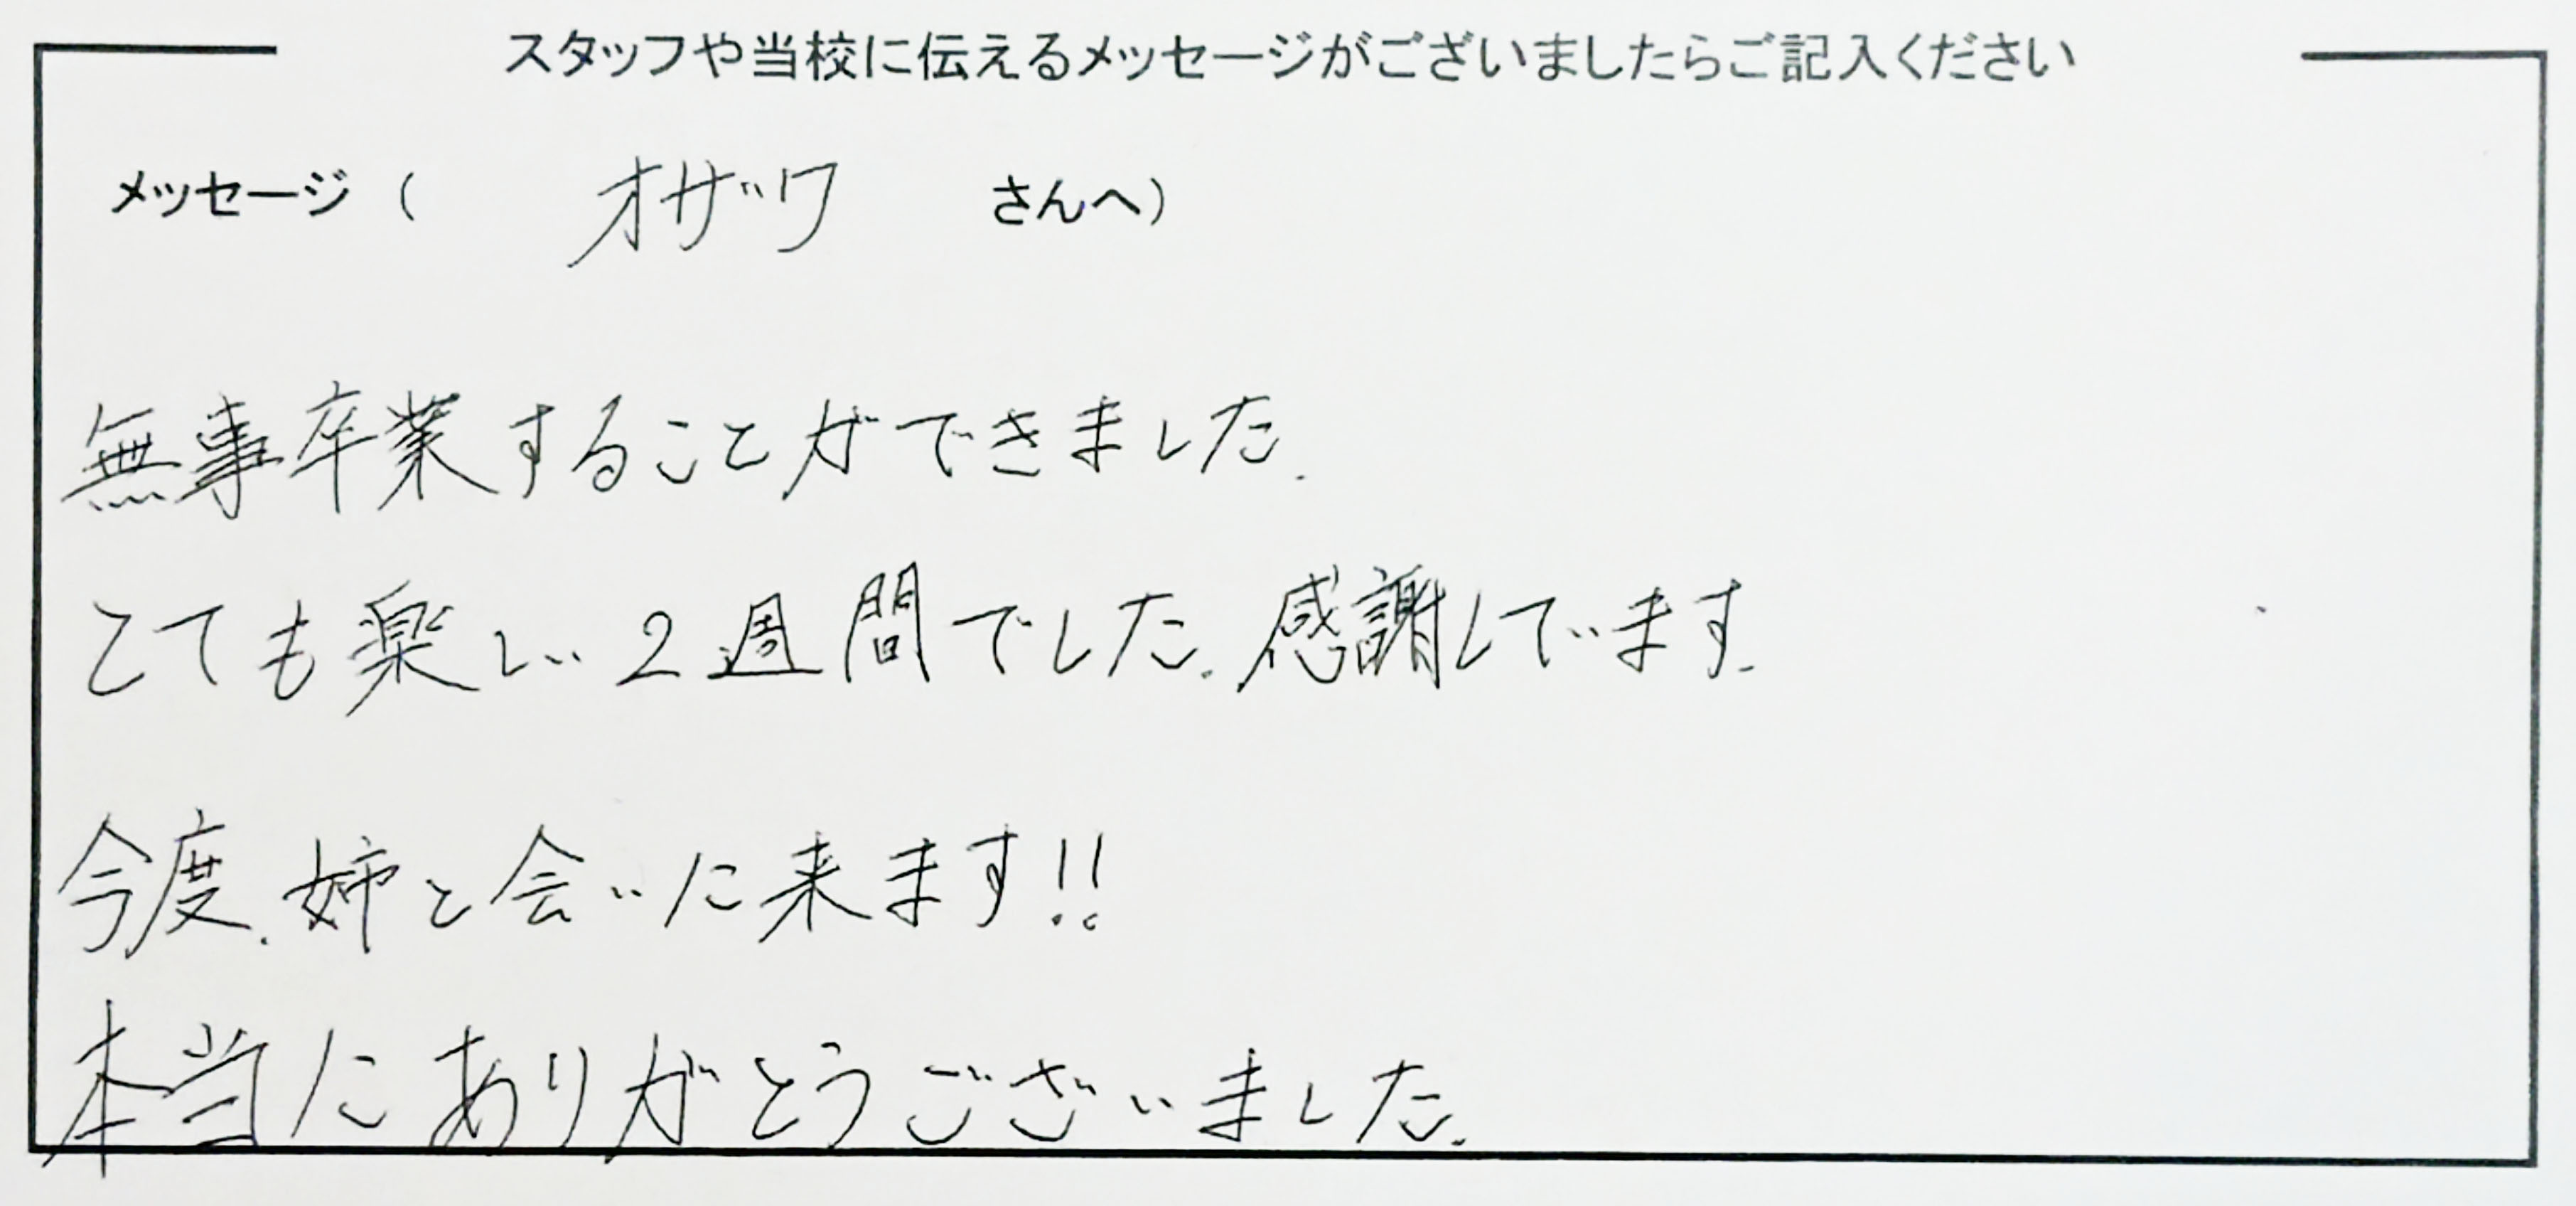 スタッフや当校に伝えるメッセージがございましたらご記入ください
メッセージ（ オザワ さんへ）
無事卒業することができました.
とても楽しい2週間でした.感謝しています.
今度.姉と会いに来ます!!
本当にありがとうございました.